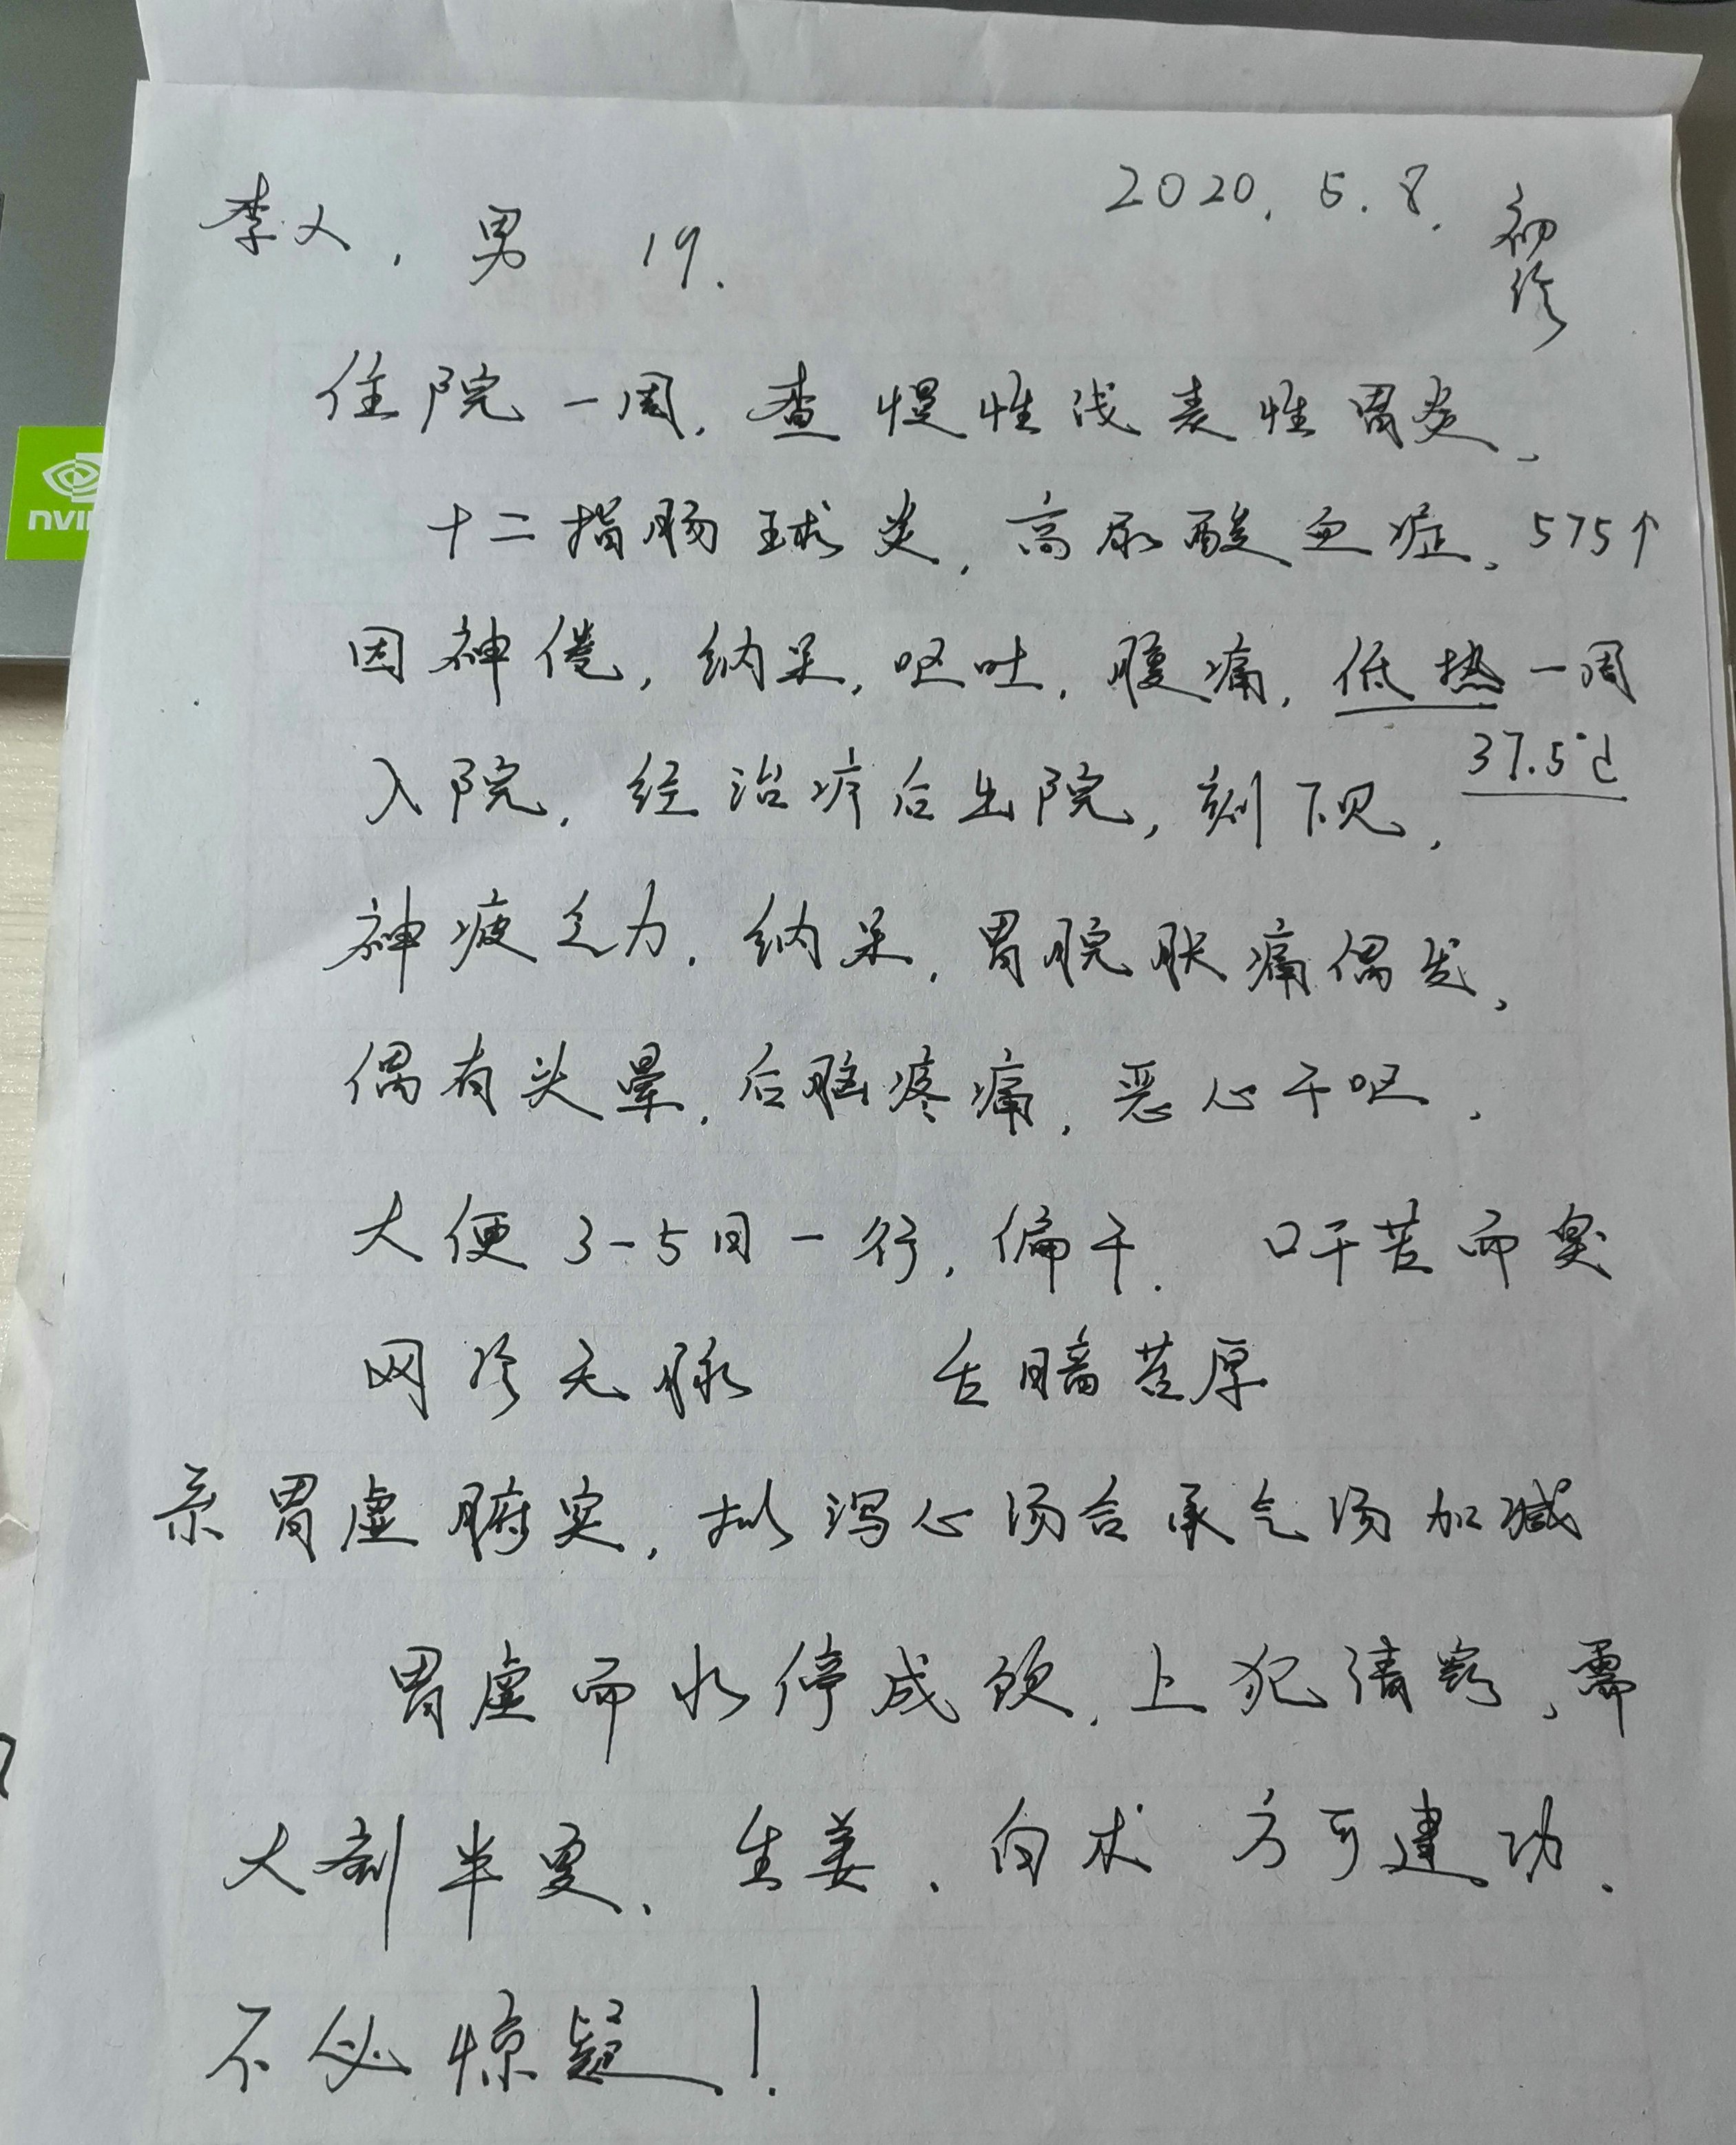 2020.5.8. 初诊
李X，男 19.
住院一周，查慢性浅表性胃炎、
十二指肠球炎，高尿酸血症、575↑
因神倦，纳呆，呕吐，腹痛，低热一周
37.5℃
入院，经治疗后出院，刻下见，
神疲乏力，纳呆，胃脘胀痛偶发、
偶有头晕，后脑疼痛，恶心干呕，
大便3-5日一行，偏干. 口干苦而臭
网诊无脉 舌暗苔厚
亲胃虚腑实，拟泻心汤合承气汤加减
胃虚而水停成饮，上犯清窍，需
大剂半夏、生姜、白术 方可建功.
不必惊疑！
nVI